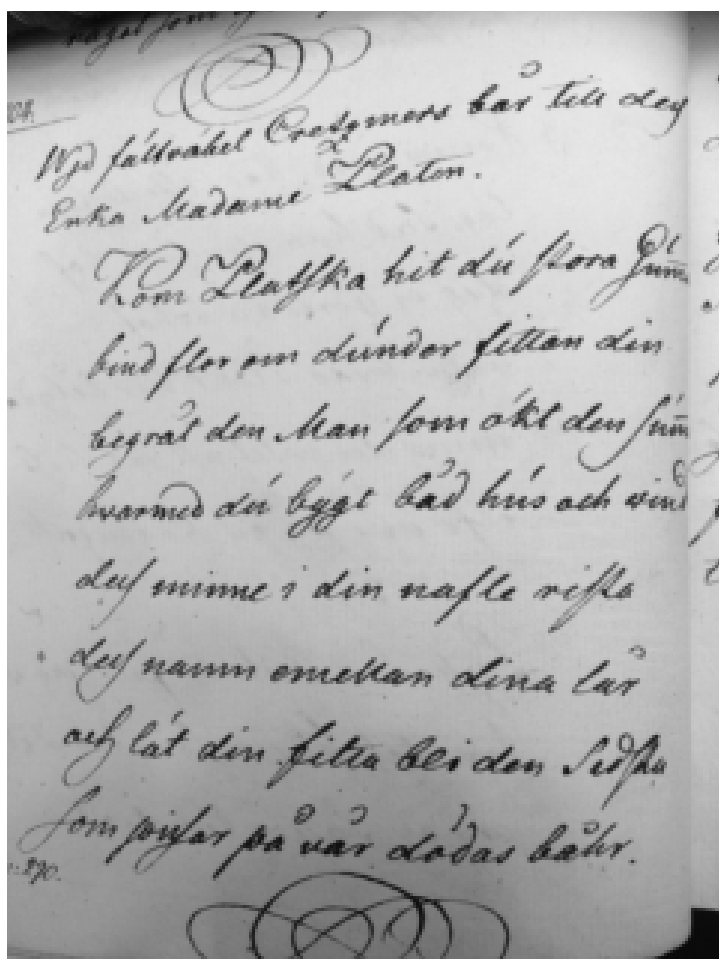 något som
208.
Wjd fältväbel Cretzmers bår till deß
Enka Madame Platon.
Kom Platska hit dú stora
bind flor om dúnder fittan din
begråt den Man som ökt den
hvarmed dú bygt båd hús och
deß minne i din nafle rista
deß namn emellan dina lår
och låt din fitta bli den sidsta
som pißar på vår dödas båhr.